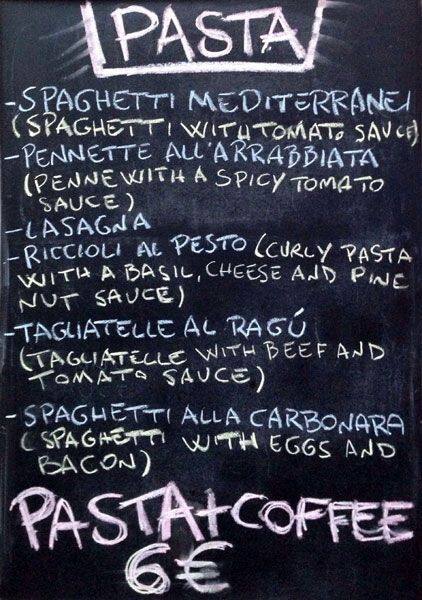 PASTA
-SPAGHETTI MEDITERRANEI
(SPAGHETTI WITH TOMATO SAUCE)
-PENNETTE ALL'ARRABBIATA
(PENNE WITH A SPICY TOMATO
SAUCE)
-LASAGNA
-RICCIOLI AL PESTO (CURLY PASTA
WITH A BASIL, CHEESE AND PINE
NUT SAUCE)
-TAGLIATELLE AL RAGÚ
(TAGLIATELLE WITH BEEF AND
TOMATO SAUCE)
-SPAGHETTI ALLA CARBONARA
(SPAGHETTI WITH EGGS AND
BACON)
PASTA+COFFEE
6€